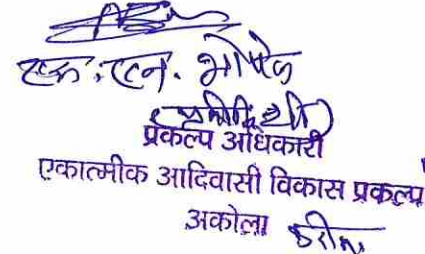 एस. एन.
प्रकल्प अधिकारी
एकात्मीक आदिवासी विकास प्रकल्प
अकोला करीता